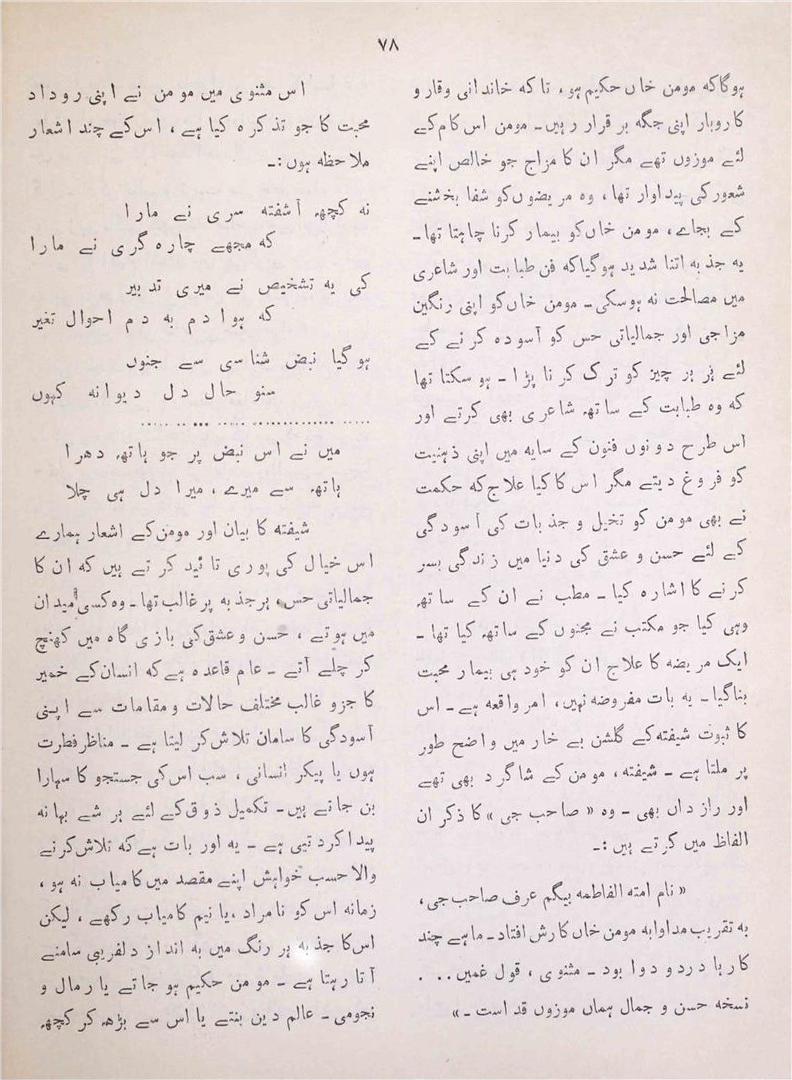 ۷۸
ہوگاکہ مومن خاں حکیم ہو، تاکہ خاندانی وقار و
کاروبار اپنی جگہ برقرار رہیں۔ مومن اس کام کے
لئے موزوں تھے مگر ان کا مزاج جو خالص اپنے
شعور کی پیداوار تھا، وہ مریضوں کو شفا بخشنے
کے بجائے، مومن خاں کو بیمار کرنا چاہتا تھا۔
یہ جذبہ اتنا شدید ہوگیا کہ فن طبابت اور شاعری
میں مصالحت نہ ہوسکی۔ مومن خاں کو اپنی رنگین
مزاجی اور جمالیاتی حس کو آسودہ کرنے کے
لئے ہر ہر چیز کو ترک کرنا پڑا۔ ہو سکتا تھا
کہ وہ طبابت کے ساتھ شاعری بھی کرتے اور
اس طرح دونوں فنون کے سایہ میں اپنی ذہنیت
کو فروغ دیتے مگر اس کا کیا علاج کہ حکمت
نے بھی مومن کو تخیل و جذبات کی آسودگی
کے لئے حسن و عشق کی دنیا میں زندگی بسر
کرنے کا اشارہ کیا۔ مطب نے ان کے ساتھ
وہی کیا جو مکتب نے مجنوں کے ساتھ کیا تھا۔
ایک مریضہ کا علاج ان کو خود ہی بیمار محبت
بناگیا۔ یہ بات مفروضہ نہیں، امر واقعہ ہے۔ اس
کا ثبوت شیفتہ کے گلشن بے خار میں واضح طور
پر ملتا ہے۔ شیفتہ، مومن کے شاگرد بھی تھے
اور رازداں بھی۔ وہ «صاحب جی» کا ذکر ان
الفاظ میں کرتے ہیں:۔
«نام امتہ الفاطمہ بیگم عرف صاحب جی،
بہ تقریب مداوابہ مومن خاں کارش افتاد۔ ماہے چند
کارہا درد و دوا بود۔ مثنوی، قول غمیں....
نسخہ حسن و جمال ہماں موزوں قد است۔»
اس مثنوی میں مومن نے اپنی روداد
محبت کا جو تذکرہ کیا ہے، اس کے چند اشعار
ملاحظہ ہوں:۔
نہ کچھ آشفتہ سری نے مارا
کہ مجھے چارہ گری نے مارا
کی یہ تشخیص نے میری تدبیر
کہ ہوا دم بہ دم احوال تغیر
ہوگیا نبض شناسی سے جنوں
سنو حال دل دیوانہ کہوں
........................................
میں نے اس نبض پر جو ہاتھ دھرا
ہاتھ سے میرے، میرا دل ہی چلا
شیفتہ کا بیان اور مومن کے اشعار ہمارے
اس خیال کی پوری تائید کرتے ہیں کہ ان کا
جمالیاتی حس، ہر جذبہ پر غالب تھا۔ وہ کسی میدان
میں ہوتے، حسن و عشق کی بازی گاہ میں کھنچ
کر چلے آتے۔ عام قاعدہ ہے کہ انسان کے خمیر
کا جزو غالب مختلف حالات و مقامات سے اپنی
آسودگی کا سامان تلاش کر لیتا ہے۔ مناظر فطرت
ہوں یا پیکر انسانی، سب اس کی جستجو کا سہارا
بن جاتے ہیں۔ تکمیل ذوق کے لئے ہر شے بہانہ
پیدا کردتیی ہے۔ یہ اور بات ہے کہ تلاش کرنے
والا حسب خواہش اپنے مقصد میں کامیاب نہ ہو،
زمانہ اس کو نامراد، یا نیم کامیاب رکھے، لیکن
اس کا جذبہ ہر رنگ میں بہ انداز دلفریبی سامنے
آتا رہتا ہے۔ مومن حکیم ہو جاتے یا رمال و
نجومی۔ عالم دین بنتے یا اس سے بڑھ کر کچھ